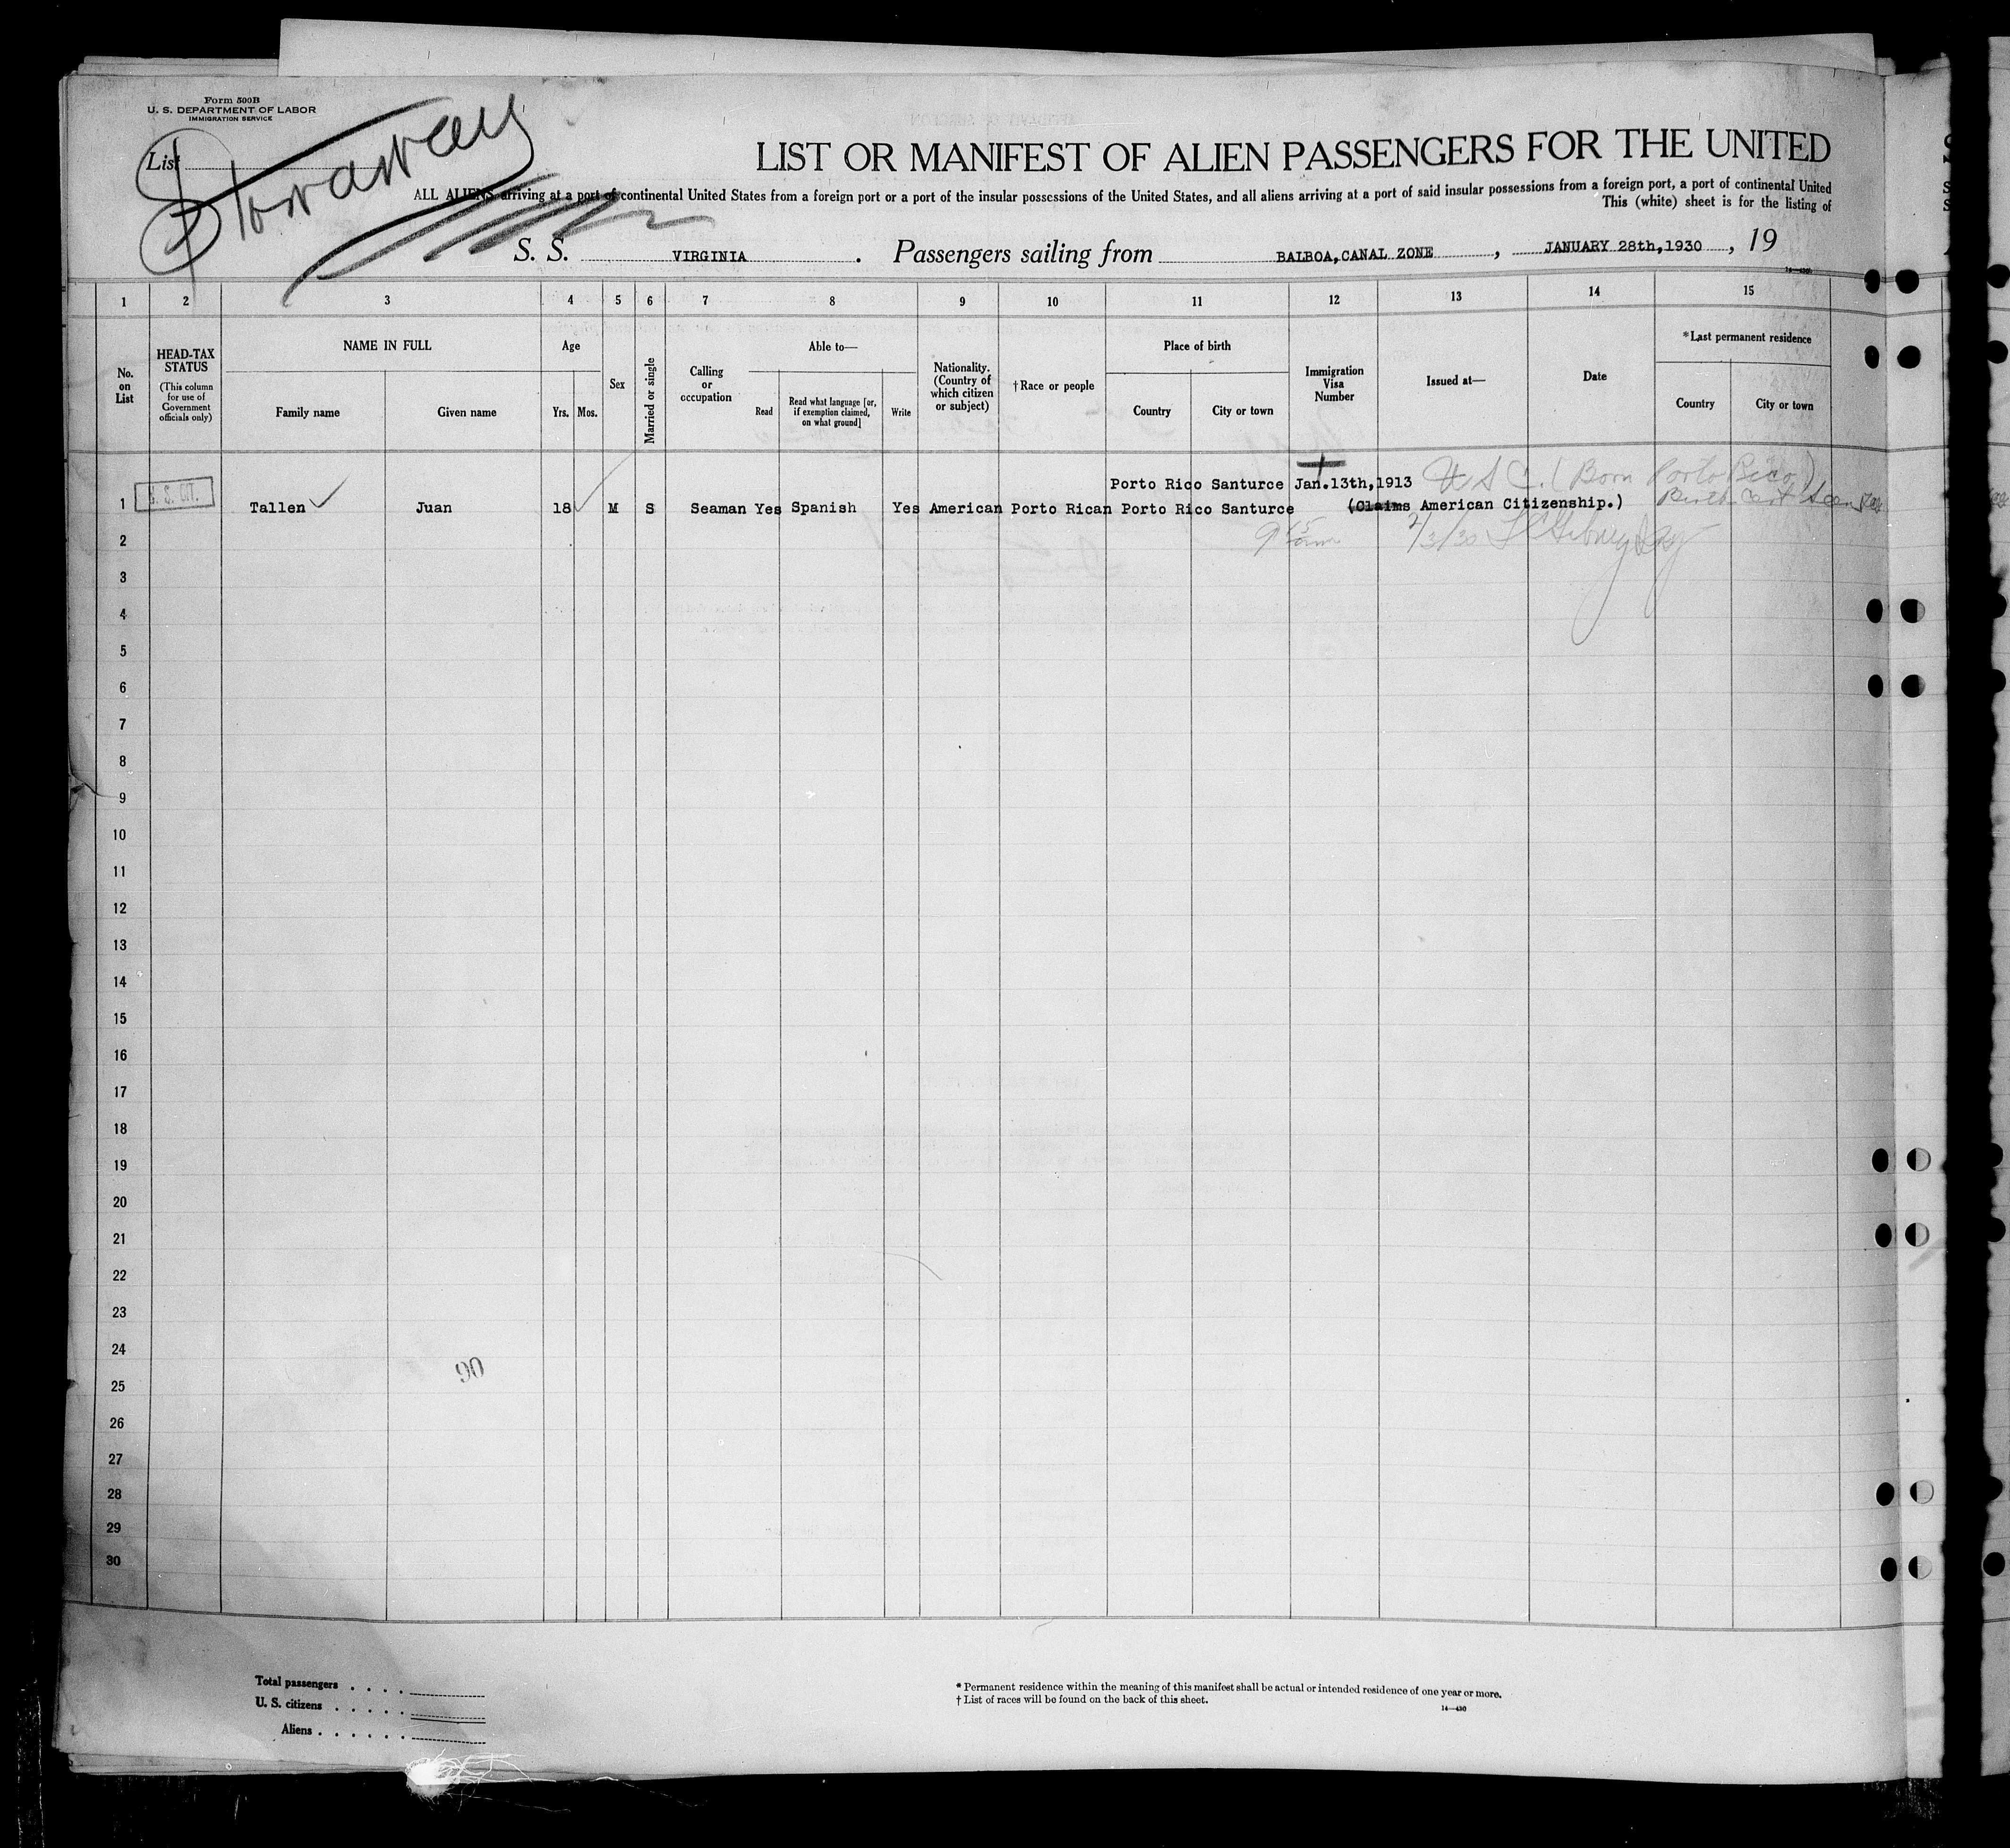 Form 500B
U. S. DEPARTMENT OF LABOR
IMMIGRATION SERVICE
List
Stowaway
LIST OR MANIFEST OF ALIEN PASSENGERS FOR THE UNITED
ALL ALIENS arriving at a port of continental United States from a foreign port or a port of the insular possessions of the United States, and all aliens arriving at a port of said insular possessions from a foreign port, a port of continental United
This (white) sheet is for the listing of
S. S. VIRGINIA . Passengers sailing from BALBOA,CANAL ZONE , JANUARY 28th,1930 , 19
14—430
1 2 3 4 5 6 7 8 9 10 11 12 13 14 15
No. on List
HEAD-TAX STATUS
(This column for use of Government officials only)
NAME IN FULL
Family name Given name
Age
Yrs. Mos.
Sex
Married or single
Calling or occupation
Able to—
Read
Read what language [or, if exemption claimed, on what ground]
Write
Nationality. (Country of which citizen or subject)
†Race or people
Place of birth
Country City or town
Immigration Visa Number
Issued at—
Date
*Last permanent residence
Country City or town
Porto Rico Santurce Jan.13th,1913 U S C. (Born Porto Rico)
1 U. S. CIT. Tallen Juan 18 M S Seaman Yes Spanish Yes American Porto Rican Porto Rico Santurce (Claims American Citizenship.) Birth Cert Seen
2 9 15 am 2/3/30
3
4
5
6
7
8
9
10
11
12
13
14
15
16
17
18
19
20
21
22
23
24
90
25
26
27
28
29
30
Total passengers . . . .
U. S. citizens . . . . .
Aliens . . . . . .
* Permanent residence within the meaning of this manifest shall be actual or intended residence of one year or more.
† List of races will be found on the back of this sheet.
14—430